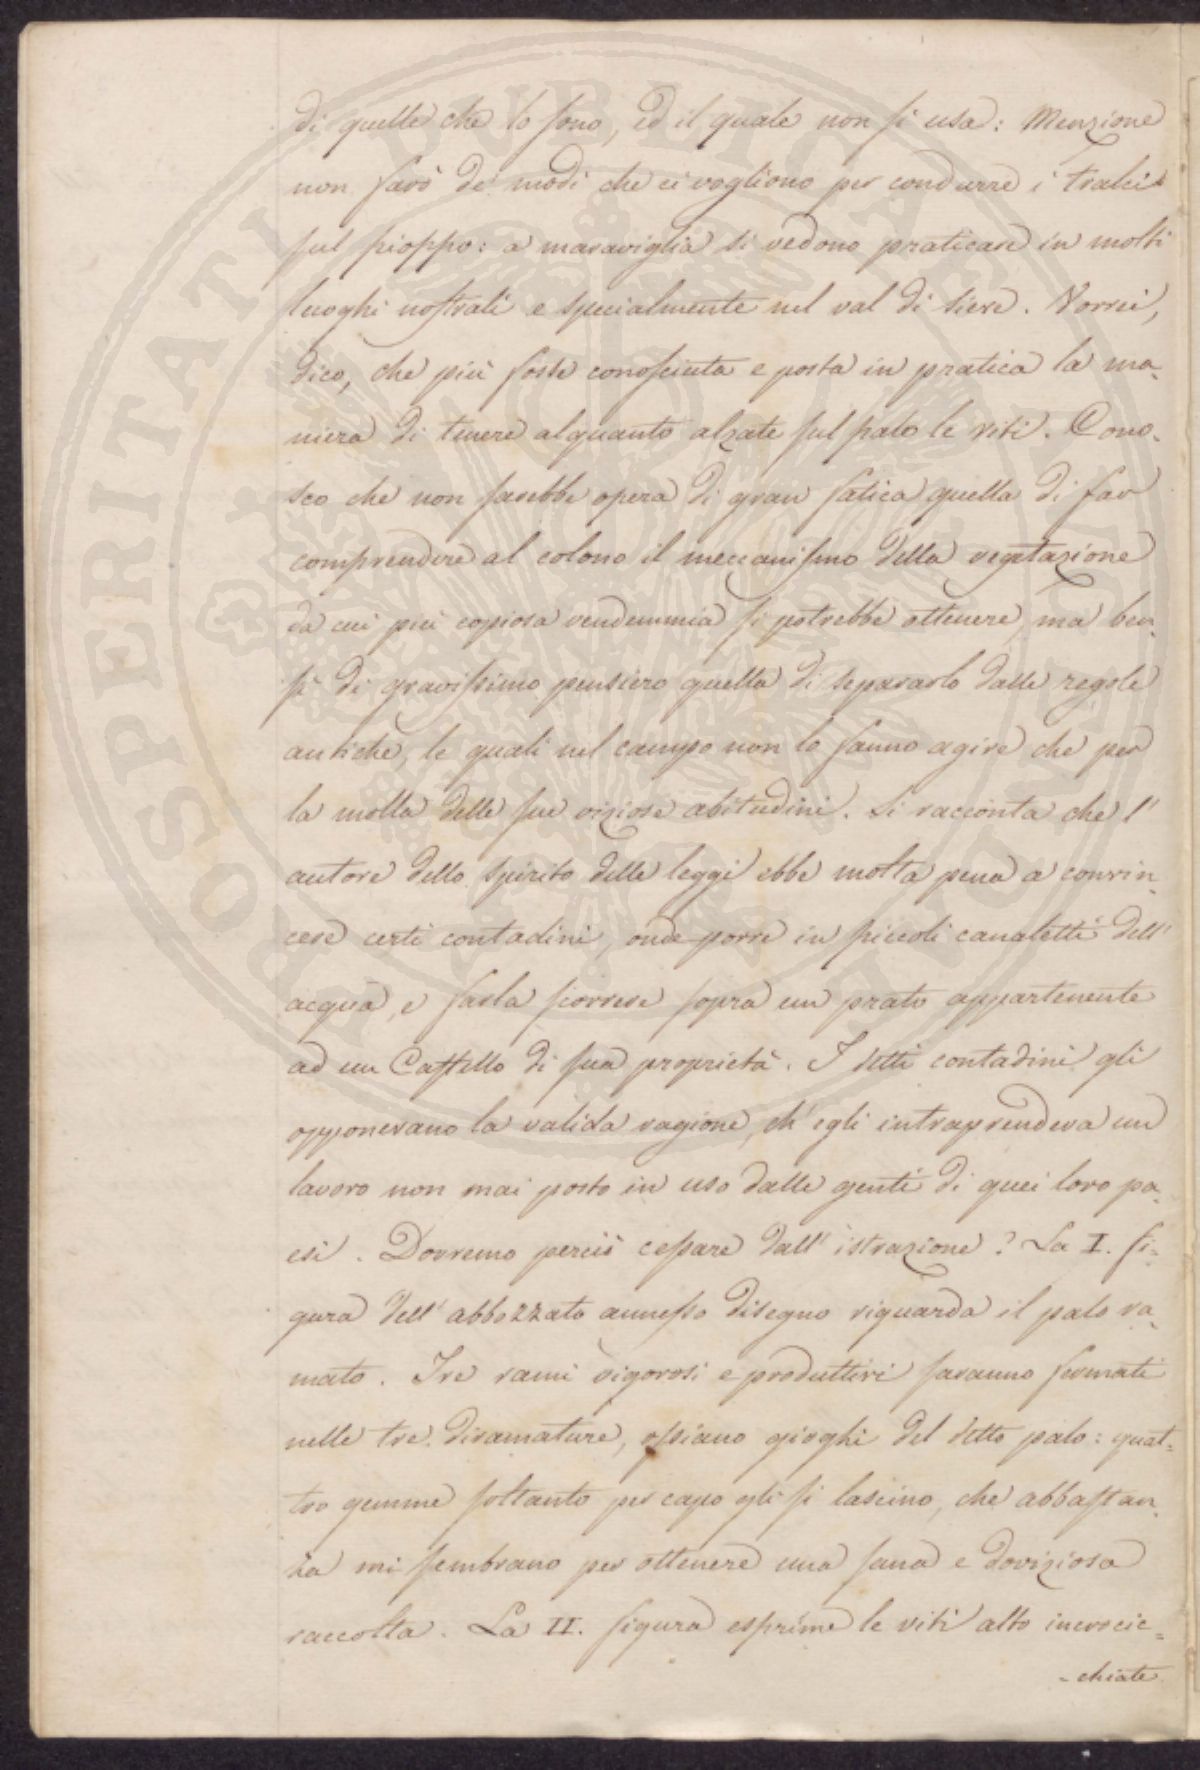 di quelle che lo sono, ed il quale non si usa: Menzione
non farò de' modi che ci vogliono per condurre i tralci
sul pioppo: a maraviglia si vedono praticare in molti
luoghi nostrali e specialmente nel val di Sieve. Vorrei,
dico, che più fosse conosciuta e posta in pratica la ma-
niera di tenere alquanto alzate sul palo le viti. Cono-
sco che non sarebbe opera di gran fatica quella di far
comprendere al colono il meccanismo della vegetazione
da cui più copiosa vendemmia si potrebbe ottenere, ma ben-
sì di gravissimo pensiero quella di separarlo dalle regole
antiche, le quali nel campo non lo fanno agire che per
la molla delle sue viziose abitudini. Si racconta che l'
autore dello spirito delle leggi ebbe molta pena a convin-
cere certi contadini, onde porre in piccoli canaletti dell'
acqua, e farla scorrere sopra un prato appartenente
ad un Castello di sua proprietà. I detti contadini gli
opponevano la valida ragione, ch' egli intraprendeva un
lavoro non mai posto in uso dalle genti di quei loro pa-
esi. Dovremo perciò cessare dall' istruzione? La I. fi-
gura dell' abbozzato annesso disegno riguarda il palo ra-
mato. Tre rami vigorosi e produttivi saranno fermati
nelle tre diramature, ossiano gioghi del detto palo: quat-
tro gemme soltanto per capo gli si lascino, che abbastan-
za mi sembrano per ottenere una sana e doviziosa
raccolta. La II. figura esprime le viti alto incrocic-
-chiate
PROSPERITATI PUBLICAE AUGENDAE